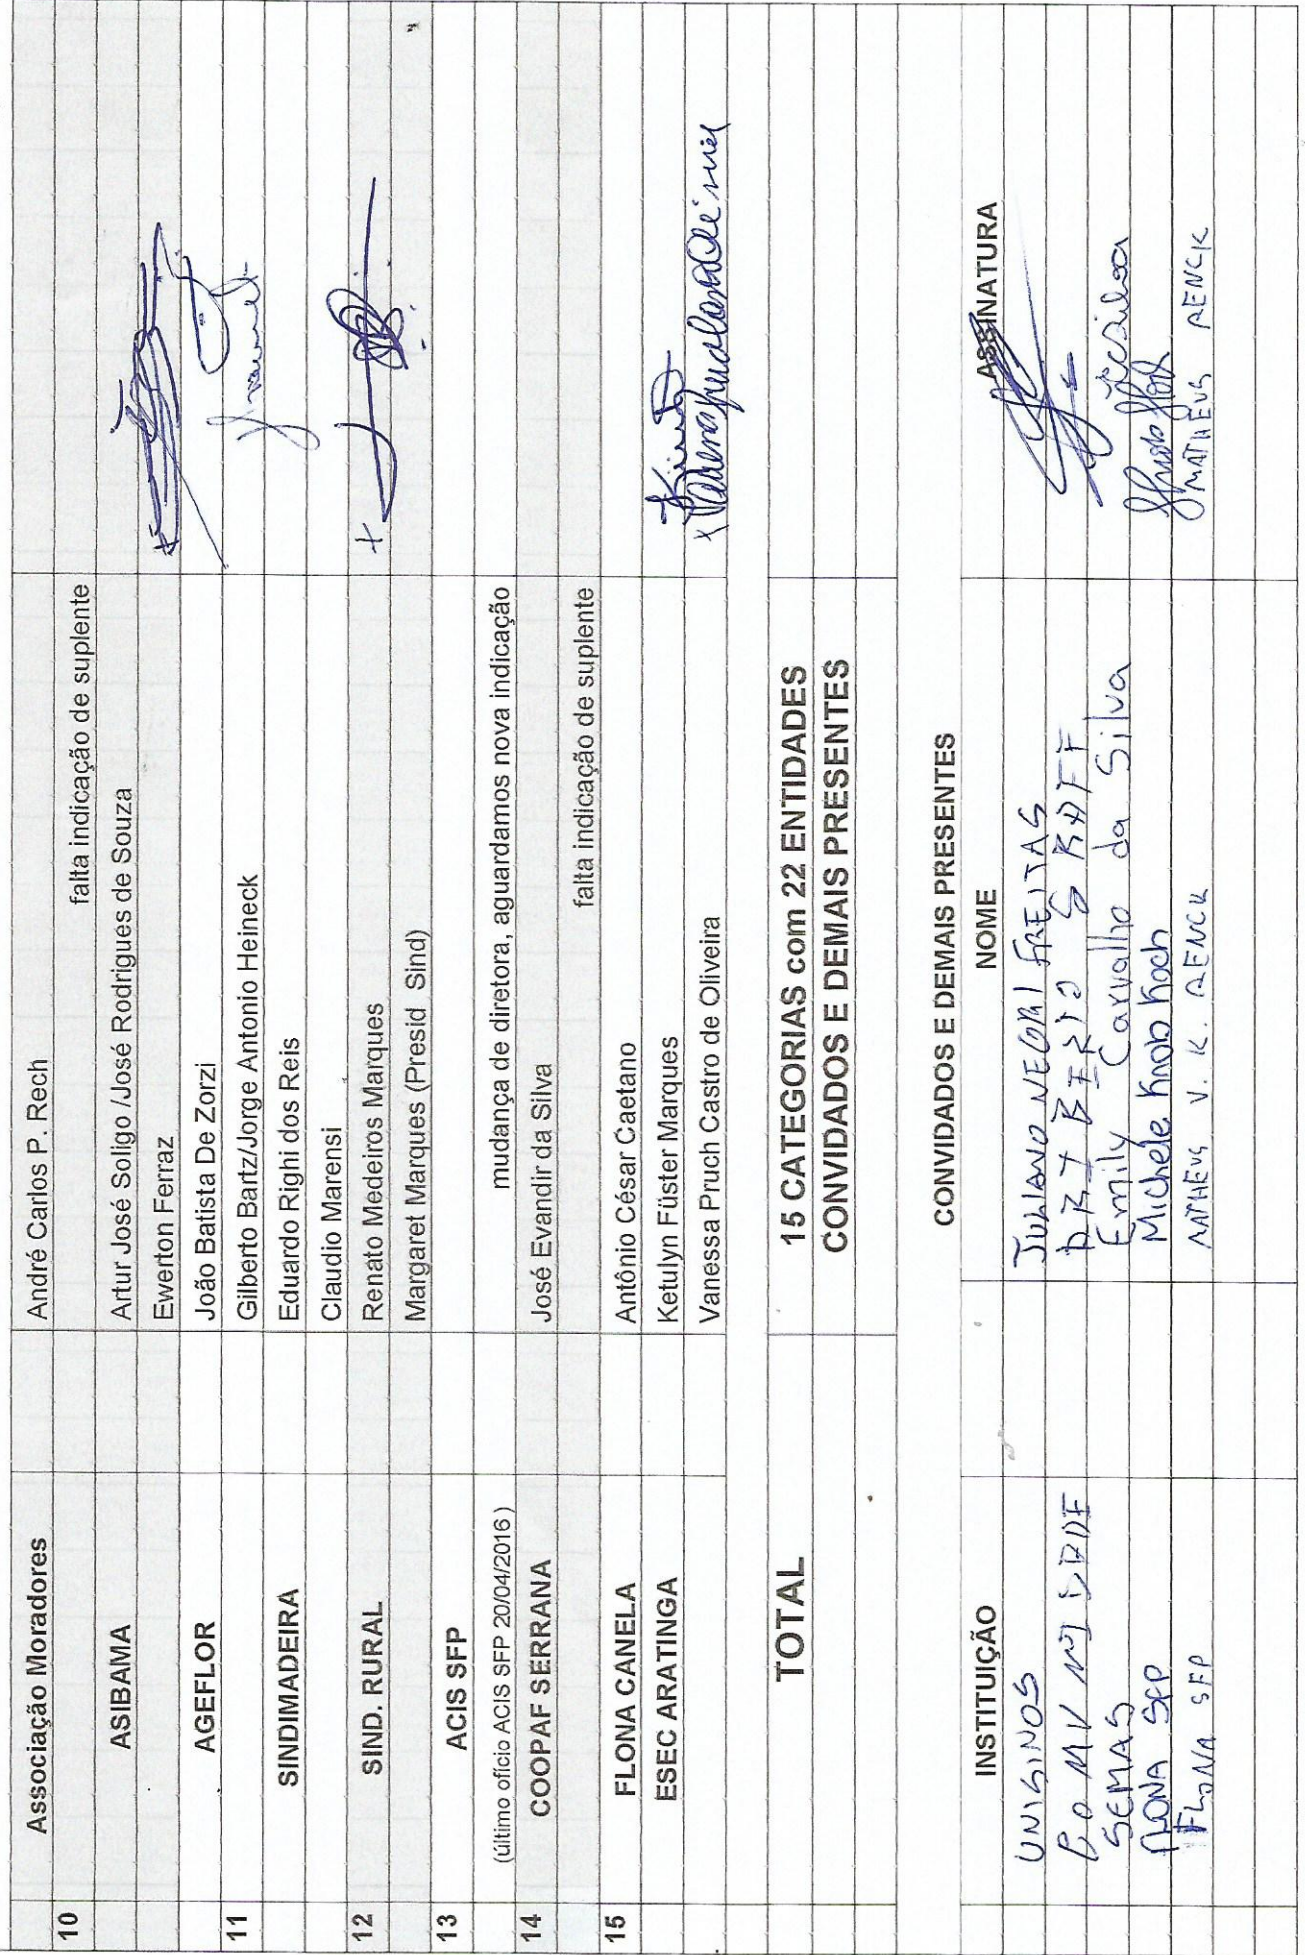 Associação Moradores André Carlos P. Rech
10 falta indicação de suplente
ASIBAMA Artur José Soligo /José Rodrigues de Souza
Ewerton Ferraz
AGEFLOR João Batista De Zorzi
11 Gilberto Bartz/Jorge Antonio Heineck
SINDIMADEIRA Eduardo Righi dos Reis
Claudio Marensi
12 SIND. RURAL Renato Medeiros Marques
Margaret Marques (Presid Sind)
13 ACIS SFP
(último ofício ACIS SFP 20/04/2016 ) mudança de diretora, aguardamos nova indicação
14 COOPAF SERRANA José Evandir da Silva
falta indicação de suplente
15 FLONA CANELA Antônio César Caetano
ESEC ARATINGA Ketulyn Füster Marques
Vanessa Pruch Castro de Oliveira
TOTAL 15 CATEGORIAS com 22 ENTIDADES
CONVIDADOS E DEMAIS PRESENTES
CONVIDADOS E DEMAIS PRESENTES
INSTITUIÇÃO NOME ASSINATURA
UNISINOS JULIANO NEGRI FREITAS
SEMAS Emily Carvalho da Silva
FLONA SFP Michele Knob Koch
FLONA SFP MATHEUS V. K. RENCK MATHEUS RENCK